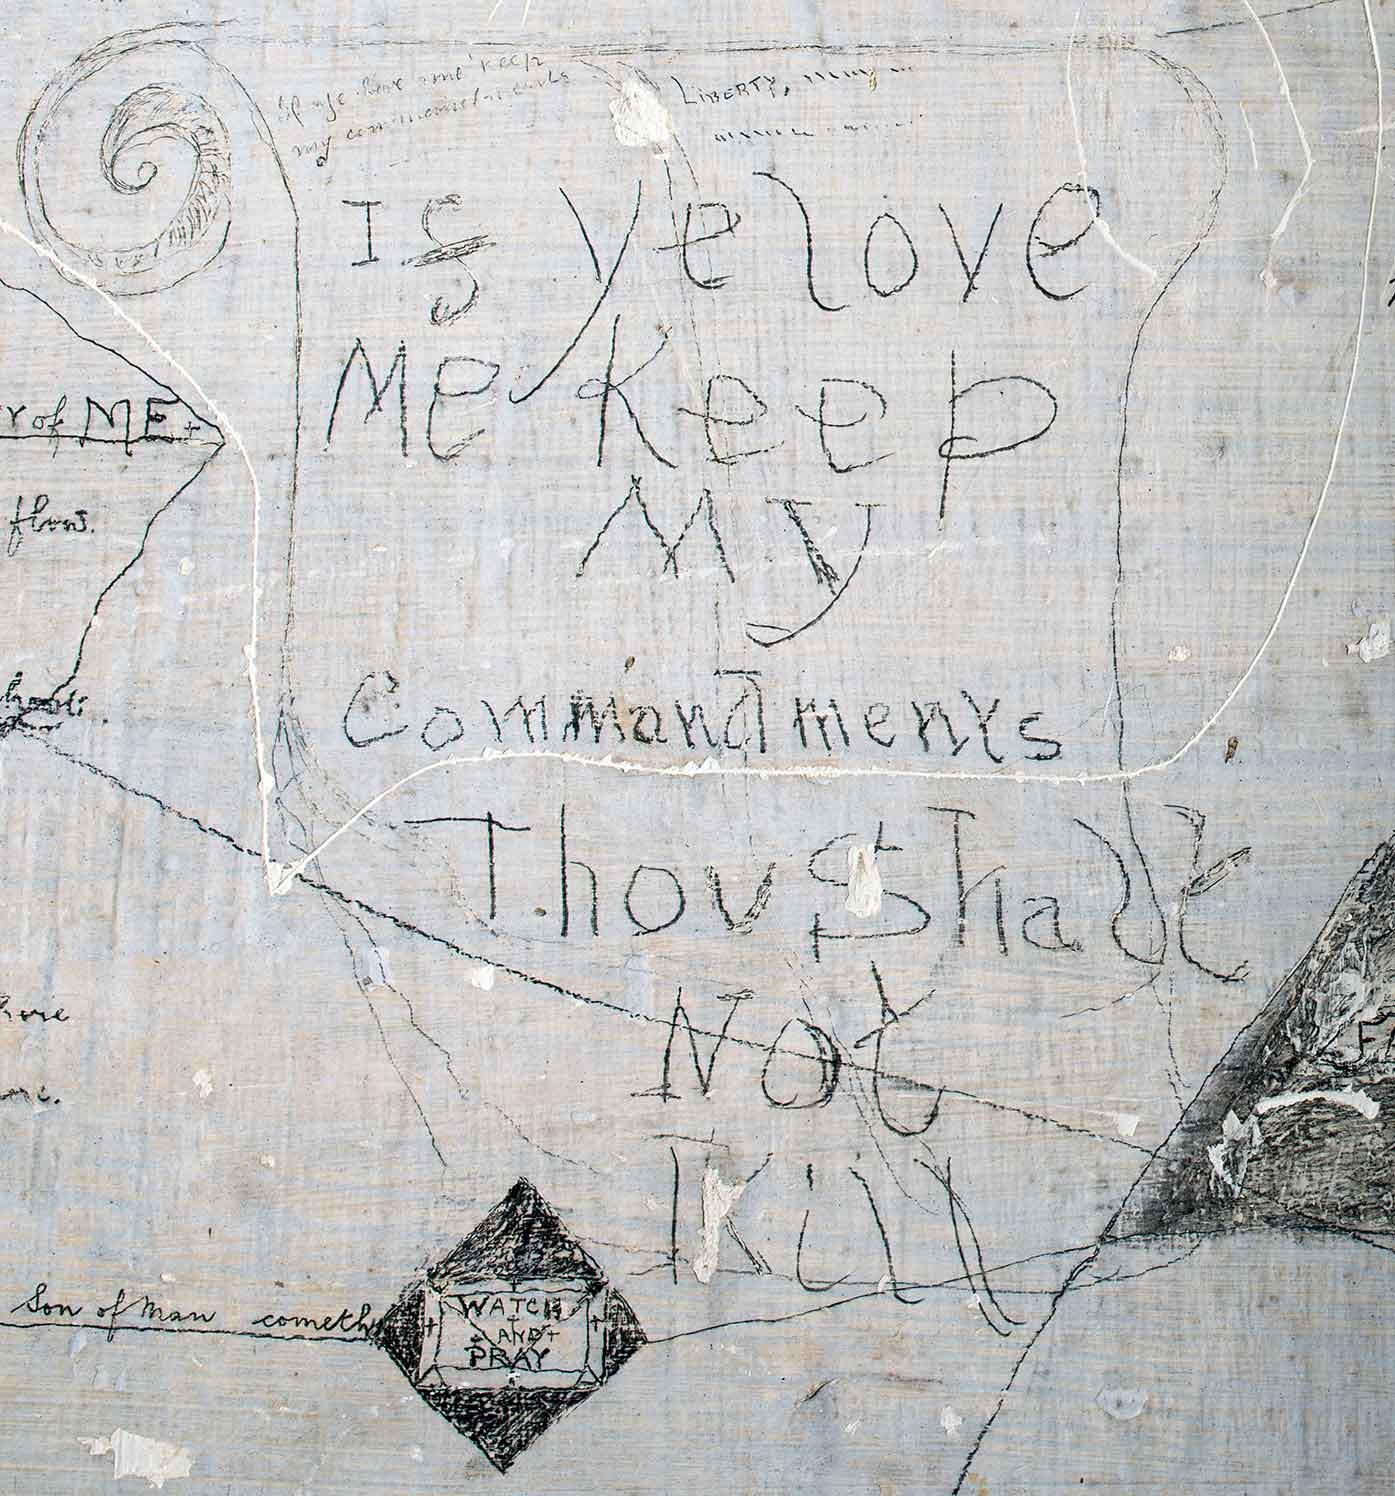 If ye love me keep
my commandments
LIBERTY,
If ye love
Me Keep
My
Commandments
r of ME
flows.
Thou Shalt
Not
Kill
Son of Man cometh
WATCH
AND
PRAY